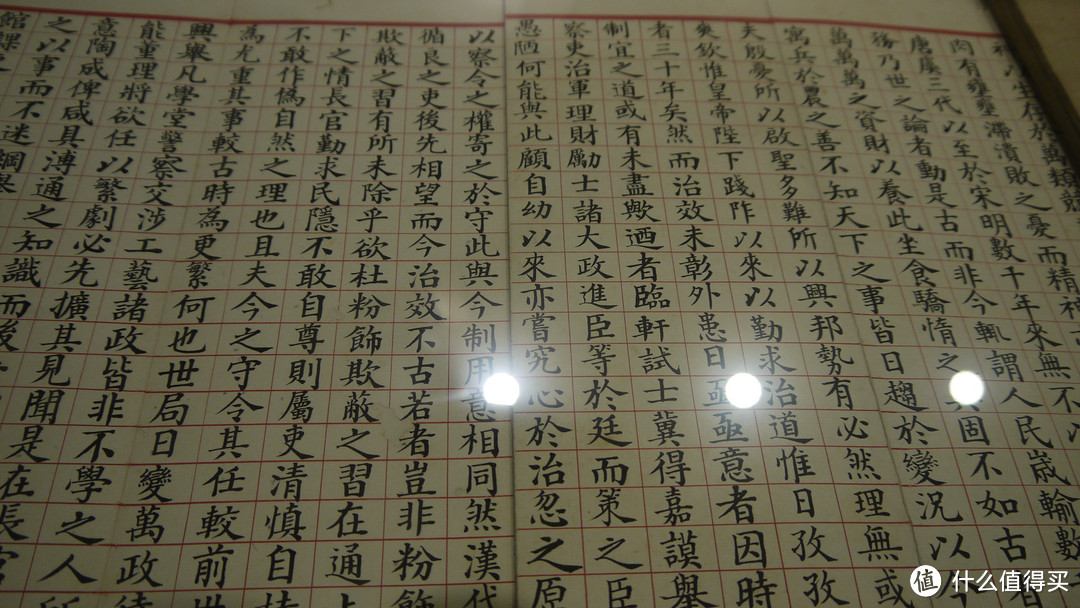 神以生存於萬類競
肉有壅壅滯潰敗之憂而精神
唐虞三代以至於宋明數千年來無不
務乃世之論者動是古而非今輒謂人民歲輸數
萬萬萬之資財以養此坐食驕惰之固不如古
寓兵於農之善不知天下之事皆日趨於變況以
夫殷憂所以啟聖多難所以興邦勢有必然理無或
爽欽惟皇帝陛下踐阼以來以勤求治道惟日孜孜
者三十年矣然而治效未彰外患日亟亟意者因時
制宜之道或有未盡歟迺者臨軒試士冀得嘉謨舉
察吏治軍理財勵士諸大政進臣等於廷而策之臣
愚陋何能與此顧自幼以來亦嘗究心於治忽之原
以察令之權寄之於守此與今制用意相同然漢代
循良之吏後先相望而今治效不古若者豈非粉飾
欺蔽之習有所未除乎欲杜粉飾欺蔽之習在通上
下之情長官勤求民隱不敢自尊則屬吏清慎自
不敢作偽自然之理也且夫今之守令其任較前世
為尤重其事較古時為更繁何也世局日變萬政待
興舉凡學堂警察交涉工藝諸政皆非不學之人所
能董理將欲任以繁劇必先擴其見聞是在長官
意陶成俾咸具溥通之知識而後
之以事而不迷綱舉
館課
值 什么值得买